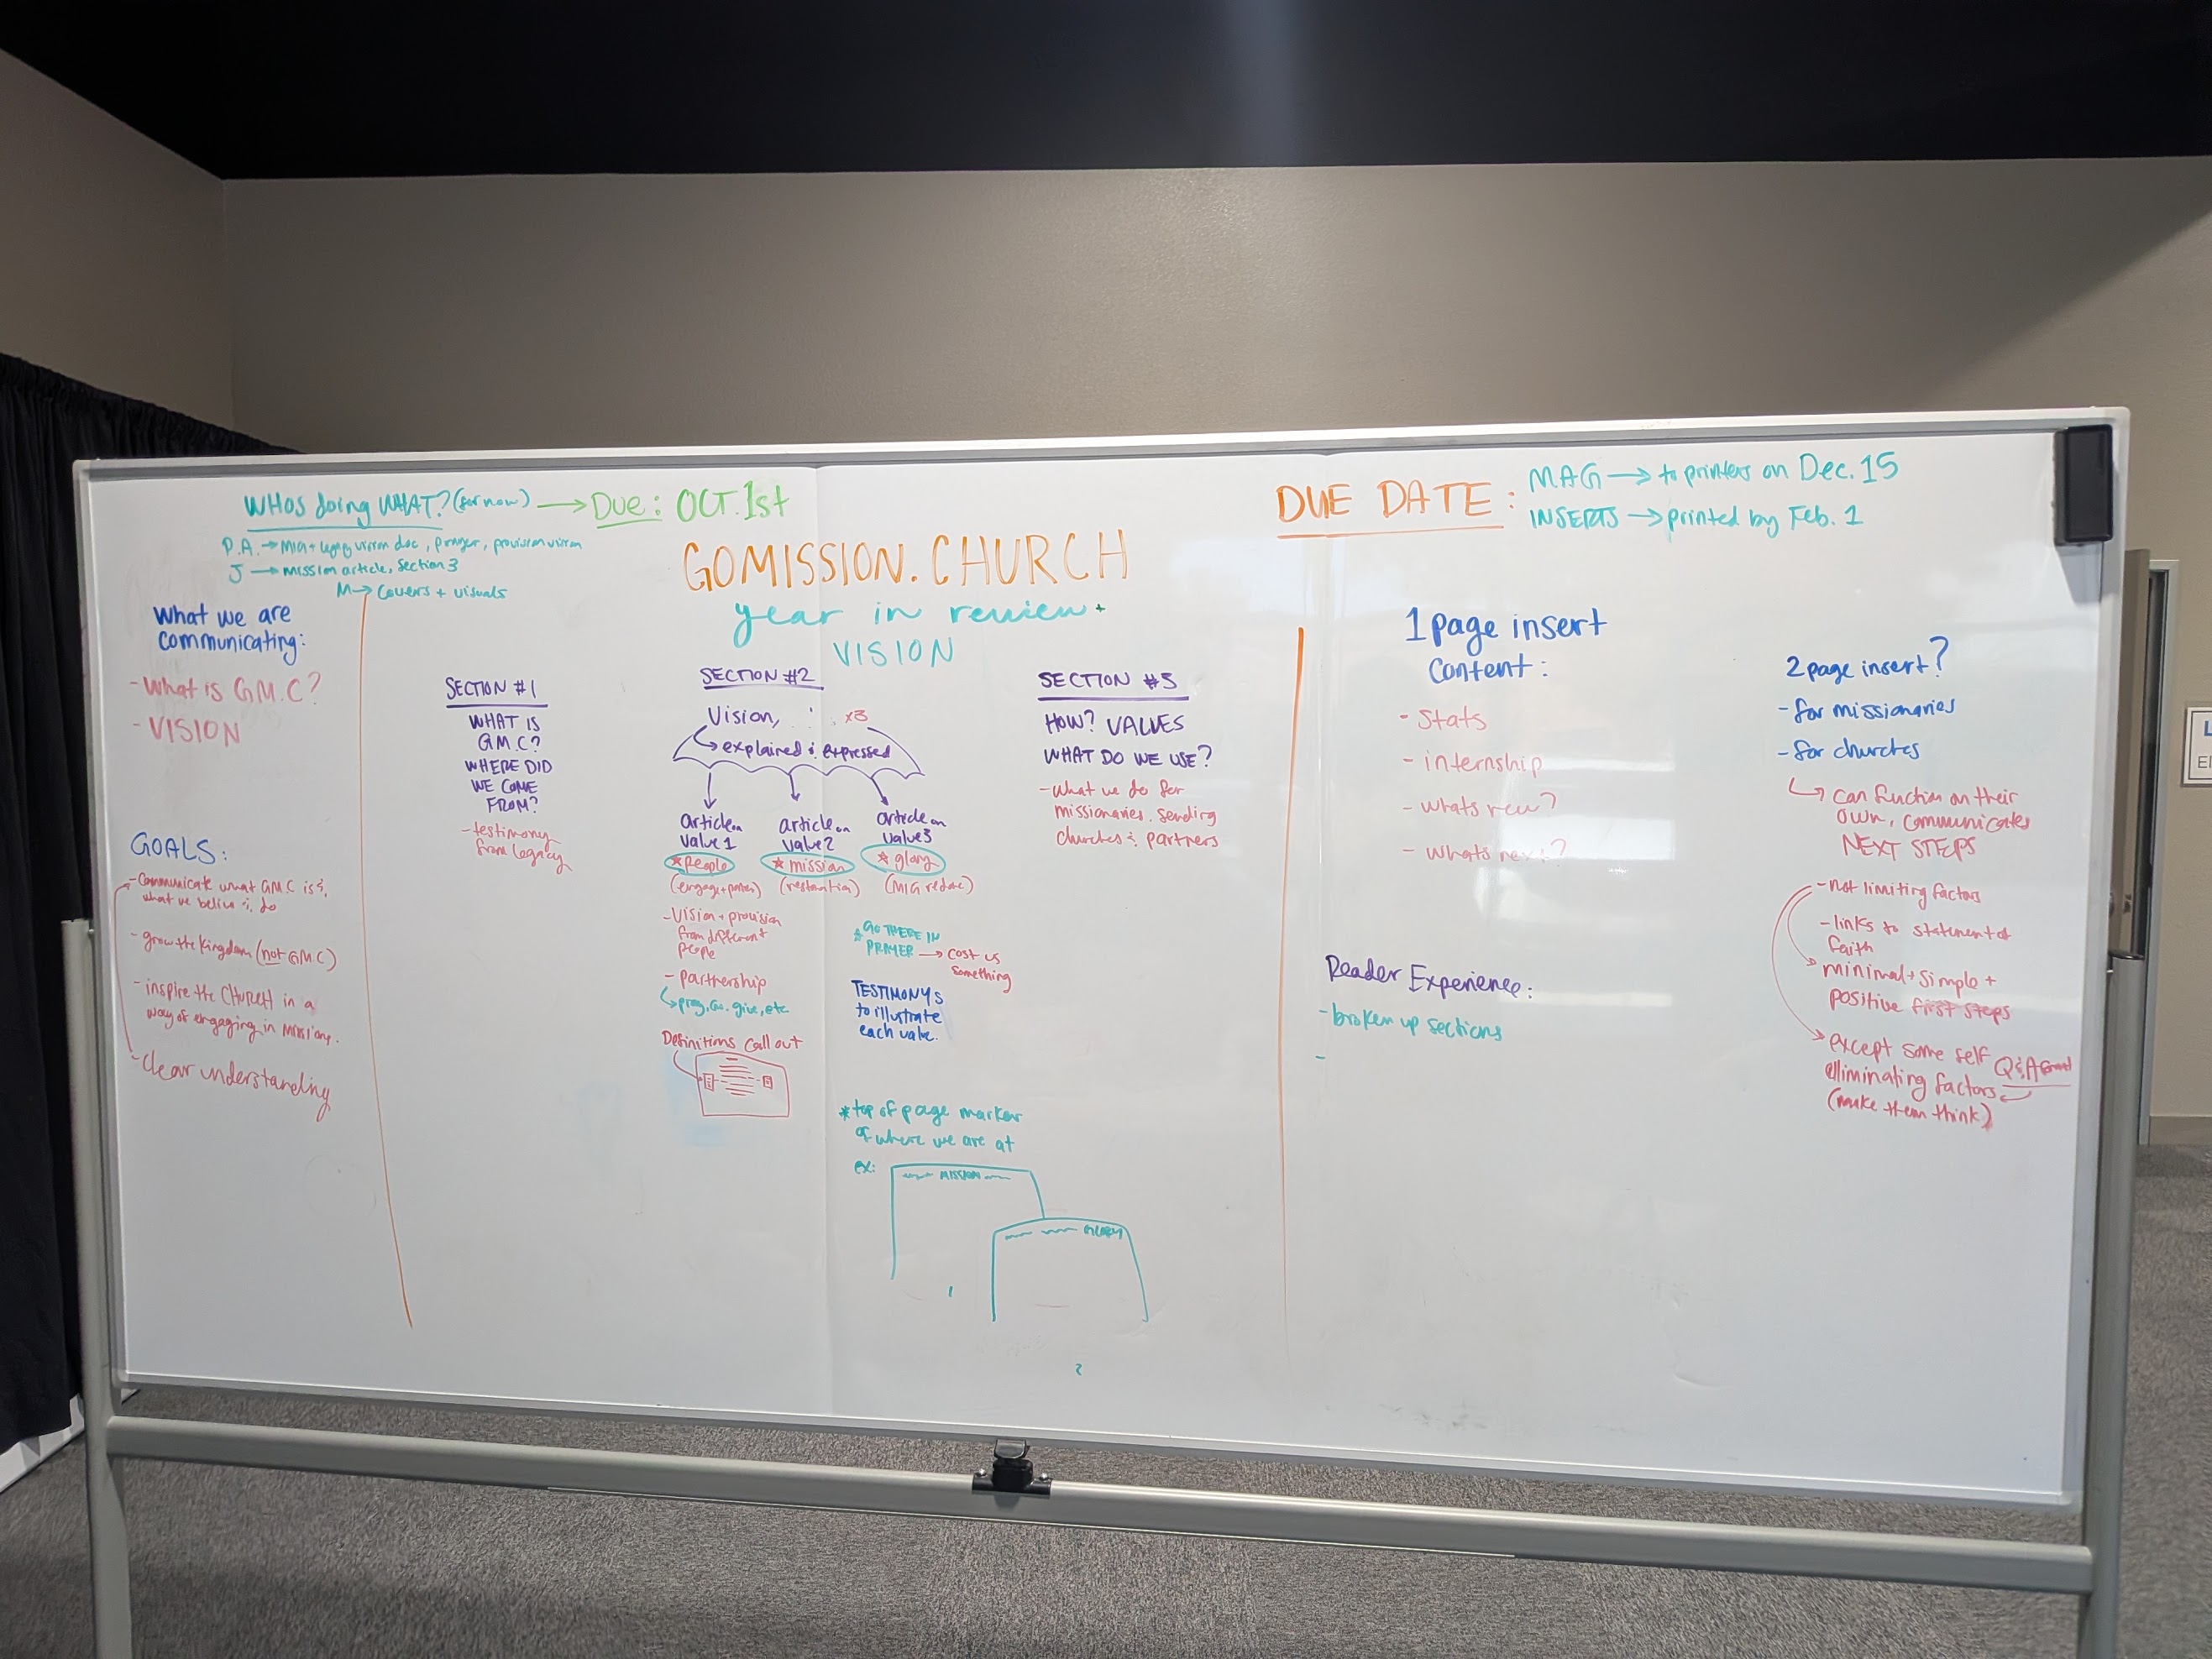 WHOS doing WHAT? (for now) → Due: OCT. 1st
P.A. → MIG + legacy vision doc, prayer, provision vision
J → mission article, Section 3
M → Covers + visuals
DUE DATE: MAG → to printers on Dec. 15
INSERTS → printed by Feb. 1
GOMISSION.CHURCH
year in review +
VISION
What we are
communicating:
- What is G.M.C?
- VISION
GOALS:
- Communicate what GMC is &
what we belive & do
- grow the kingdom (not GMC)
- inspire the CHURCH in a
way of engaging in missions.
- Clear understanding
SECTION #1
WHAT IS
G.M.C?
WHERE DID
WE COME
FROM?
- testimony
from legacy
SECTION #2
Vision, x3
↳ explained & expressed
article on
value 1
* people
(engage + )
article on
value 2
* mission
(restoration)
article on
value 3
* glory
(MIG redone)
- Vision + provision
from different
people
- partnership
↳ pray, Go, give, etc
Definitions Call out
* GO THERE IN
PRAYER → cost us
something
TESTIMONYS
to illustrate
each value.
* top of page marker
of where we are at
ex:
MISSION
GLORY
1
2
SECTION #3
HOW? VALUES
WHAT DO WE USE?
- what we do for
missionaries, sending
churches & partners
1 page insert
Content:
- Stats
- internship
- whats new?
- whats next?
Reader Experience:
- broken up sections
-
2 page insert?
- for missionaries
- for churches
↳ can function on their
own, communicates
NEXT STEPS
- not limiting factors
- links to statement of
faith
minimal + simple +
positive first steps
except some self
eliminating factors
(make them think)
Q&A